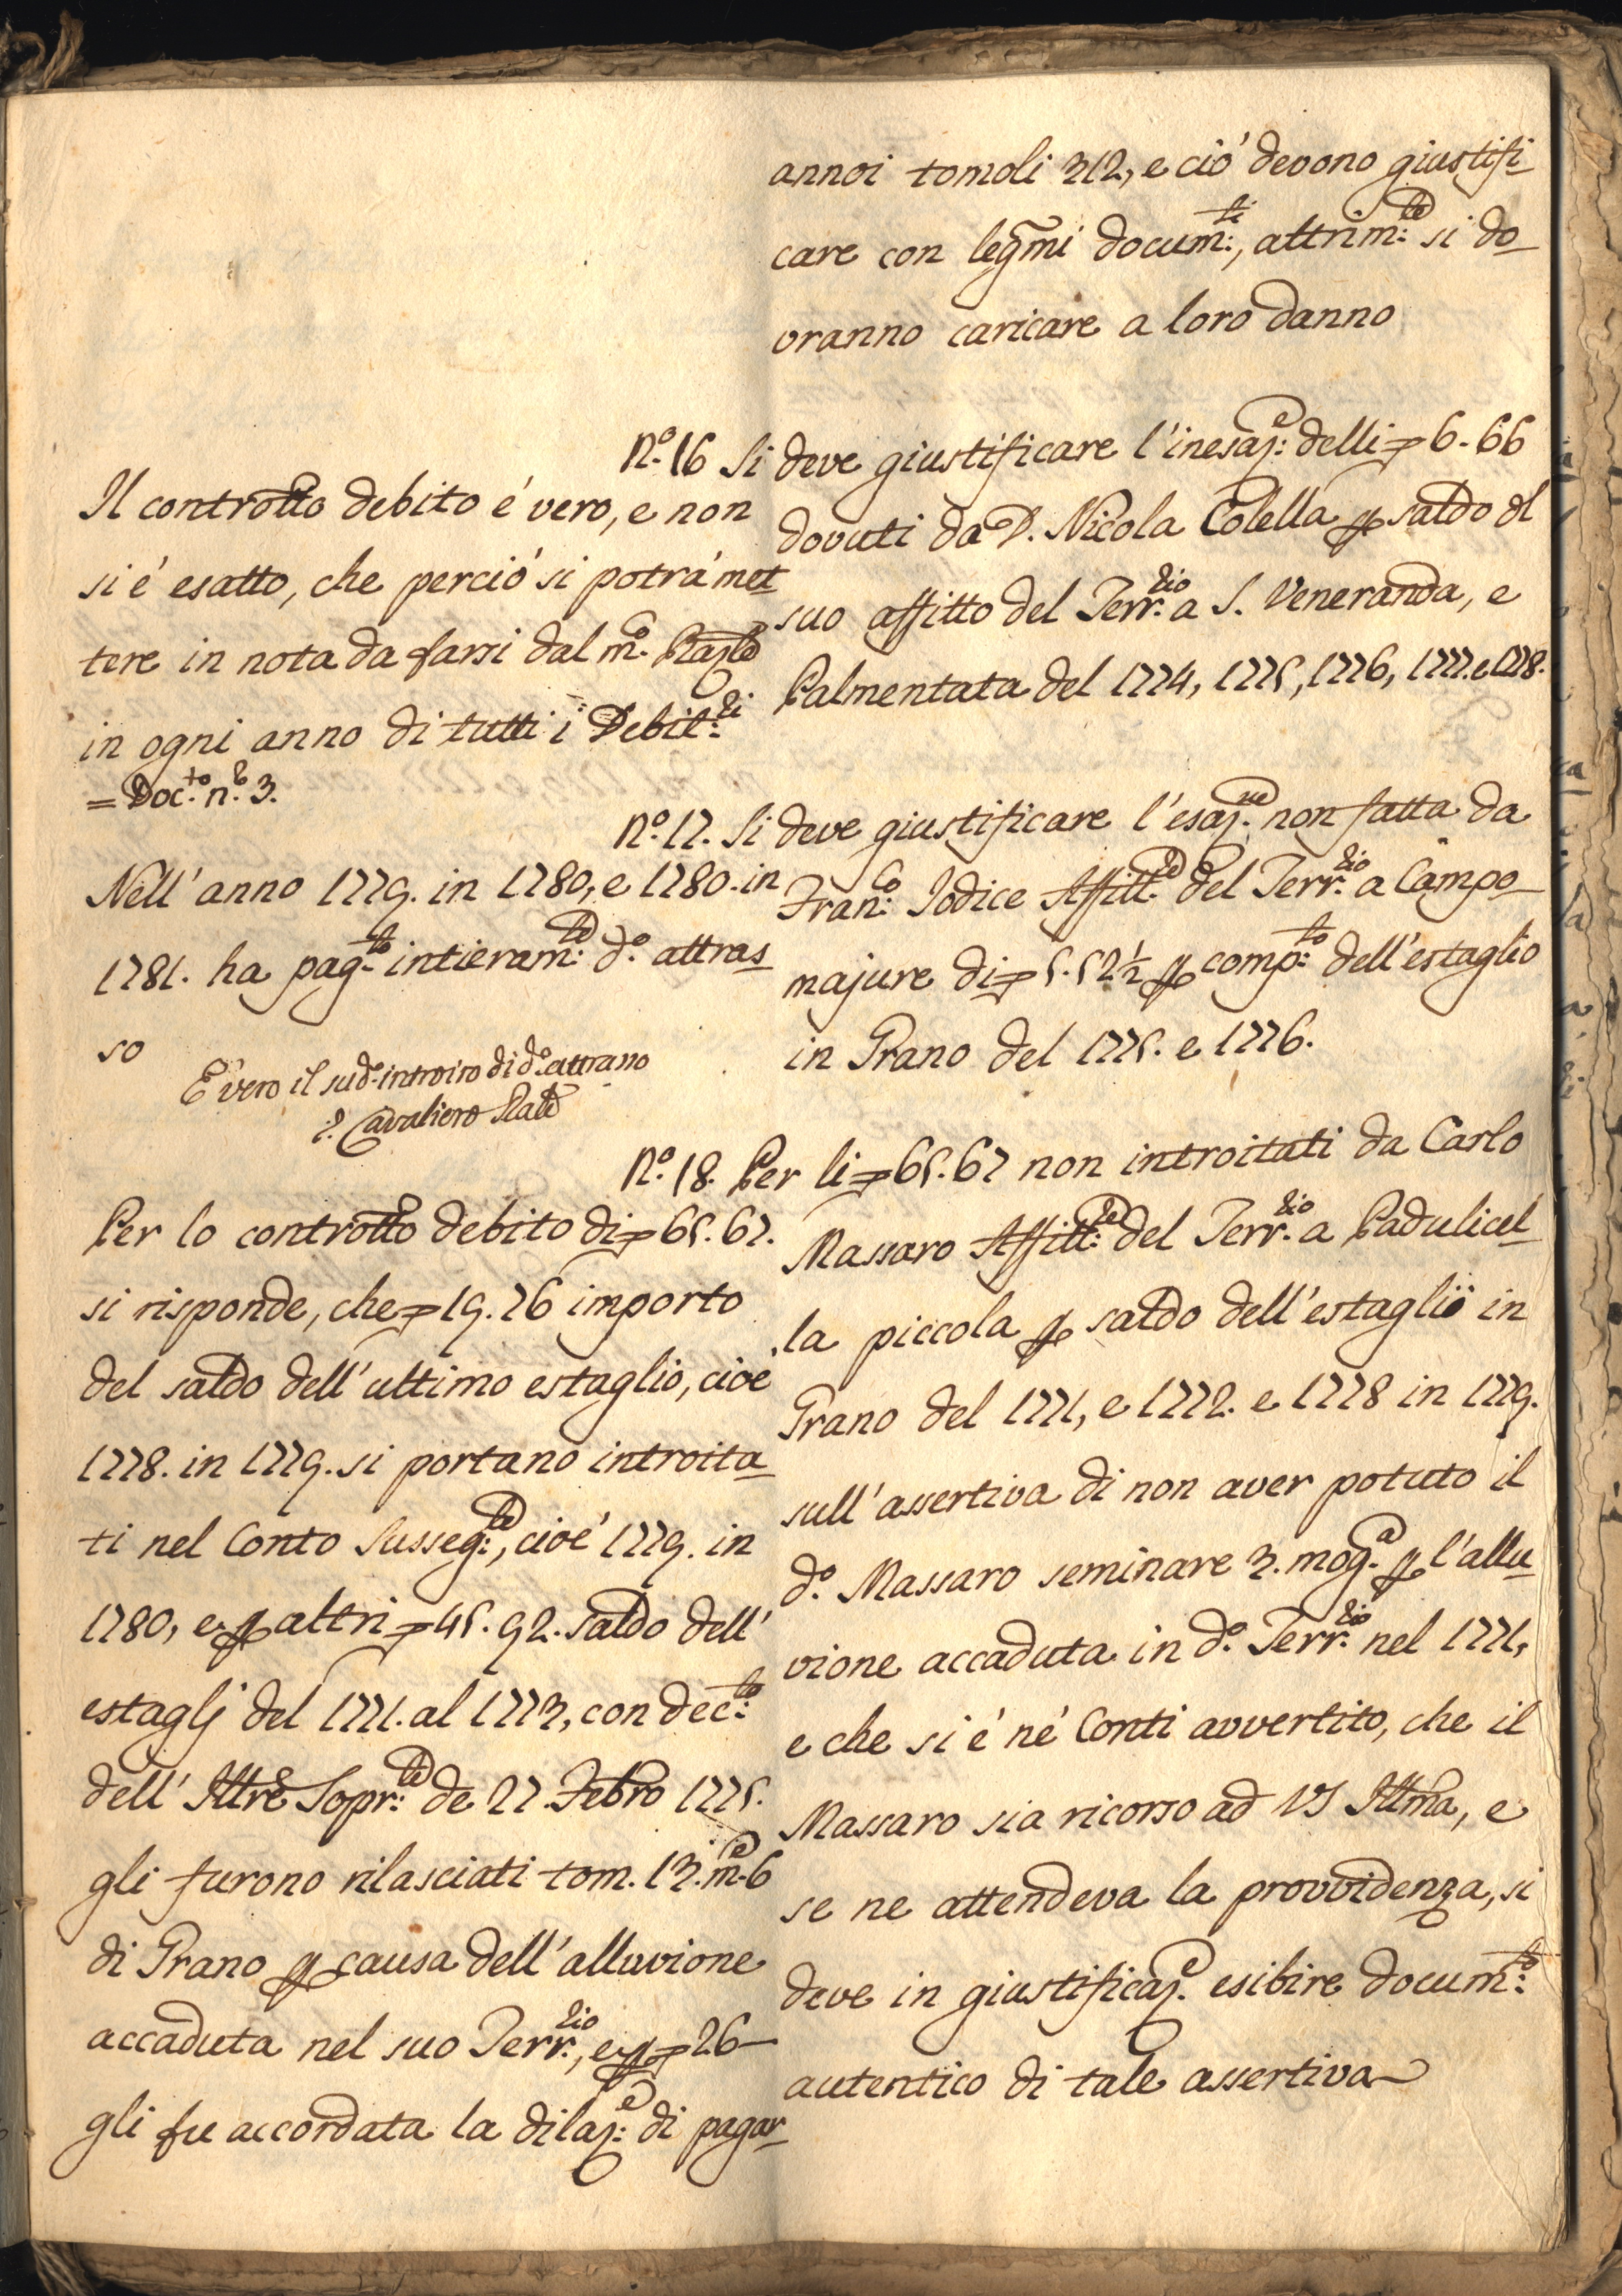 annoi tomoli 312, e ciò devono giustifi-
care con legmi docum:ti, altrim:te si do-
vranno caricare a loro danno
N.o 16 Si deve giustificare l'inesaz:e delli 6-66
dovuti da D. Nicola Colella p saldo dl
suo affitto del Terr:rio a S. Veneranda, e
Palmentata del 1774, 1775, 1776, 1777. e 1778.
Il controtto debito è vero, e non
si è esatto, che perciò si potrà met-
tere in nota da farsi dal m:o
in ogni anno di tutti i Debit:ri
= Doc:to n.o 3.
N.o 17. Si deve giustificare l'esaz:ne non fatta da
Fran:co Jodice Affitt:re del Terr:rio a Campo-
majure di 5.52½ p comp:to dell'estaglio
in Grano del 1775. e 1776.
Nell'anno 1779. in 1780, e 1780. in
1781. ha pag:to intieram:te d:o attras-
so
È vero il sud:o introiro di d:o attrasso
Cavaliero
N.o 18. Per li 65.67 non introitati da Carlo
Massaro Affitt:re del Terr:rio a Padulicel-
la piccola p saldo dell'estaglio in
Grano del 1771, e 1772. e 1778 in 1779.
sull'assertiva di non aver potuto il
d:o Massaro seminare 3. mog:a p l'allu-
vione accaduta in d:o Terr:rio nel 1771,
e che si è nè Conti avvertito, che il
Massaro sia ricorso ad VS Illma, e
se ne attendeva la provvidenza, si
deve in giustificaz:e esibire docum:to
autentico di tale assertiva
Per lo controtto debito di 65.67.
si risponde, che 19.76 importo
del saldo dell'ultimo estaglio, cioè
1778. in 1779. si portano introita-
ti nel Conto Susseg:te, cioè 1779. in
1780, e p altri 45.92. saldo dell'
estaglj del 1771. al 1773, con dec:to
dell'Illre Sopr:te de 27. Febro 1775.
gli furono rilasciati tom. 13. m:e 6
di Grano p causa dell'alluvione
accaduta nel suo Terr:rio, e p 26-
gli fu accordata la dilaz:e di pagar-